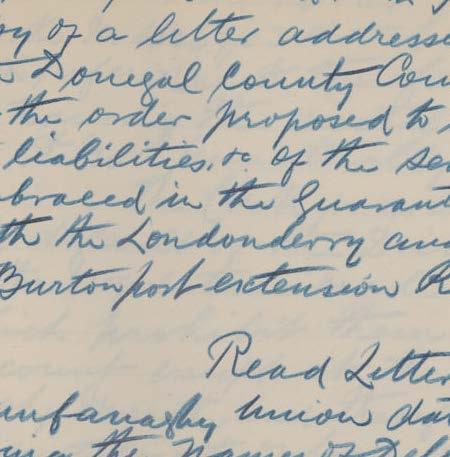 of a letter addresse
Donegal County Coun
the order proposed to
liabilities, &c of the se
braced in the Guarant
th the Londonderry and
Burtonport extension R
Read Letter
unfanaghy Union dat
the names of Del